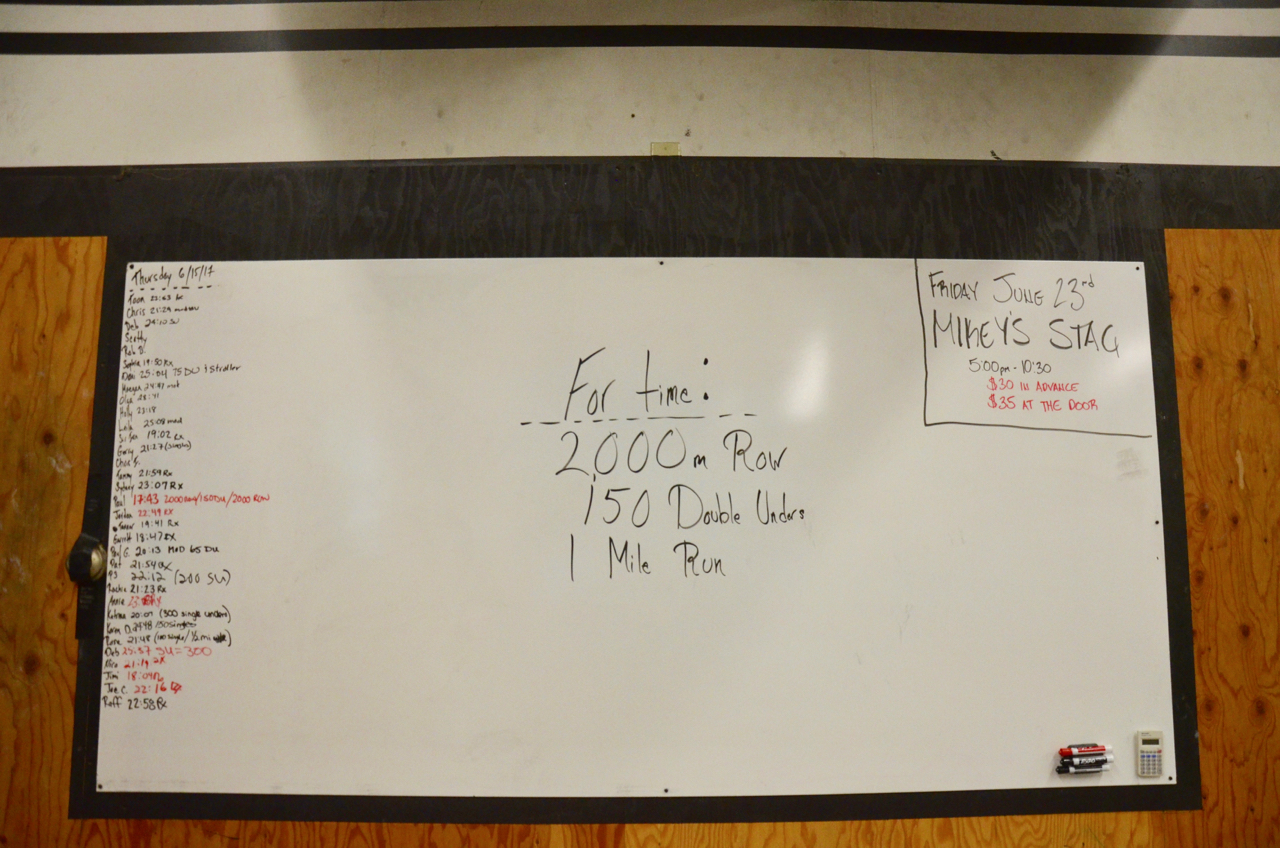 Thursday 6/15/17
Chris 21:29
Deb 24:10 SU
Scotty
Rob B.
Sophie 19:50 Rx
25:04 75 DU + Stroller
24:47 mod
Olga 28:41
Holly 23:18
25:08 mod
19:02 Rx
Gary 21:27
Chris S.
Tammy 21:59 Rx
Sydney 23:07 Rx
Paul 17:43 2000 Row/150 DU/2000 ROW
Jordan 22:49 RX
19:41 Rx
Garrett 18:47 RX
Paul G. 20:13 MOD 65 DU
Pat 21:54 RX
PJ 22:12 (200 SU)
Rachie 21:23 Rx
Annie
Katrina 20:07 (300 single unders)
Karen D. 150 singles
21:48 /1/2 mi
Deb 25:37 SU=300
21:19 RX
Jimi 18:04
Joe C. 22:16
Raff 22:58 Rx
For time:
2,000m Row
150 Double Unders
1 Mile Run
FRIDAY JUNE 23rd
MIKEY'S STAG
5:00pm - 10:30
$30 IN ADVANCE
$35 AT THE DOOR